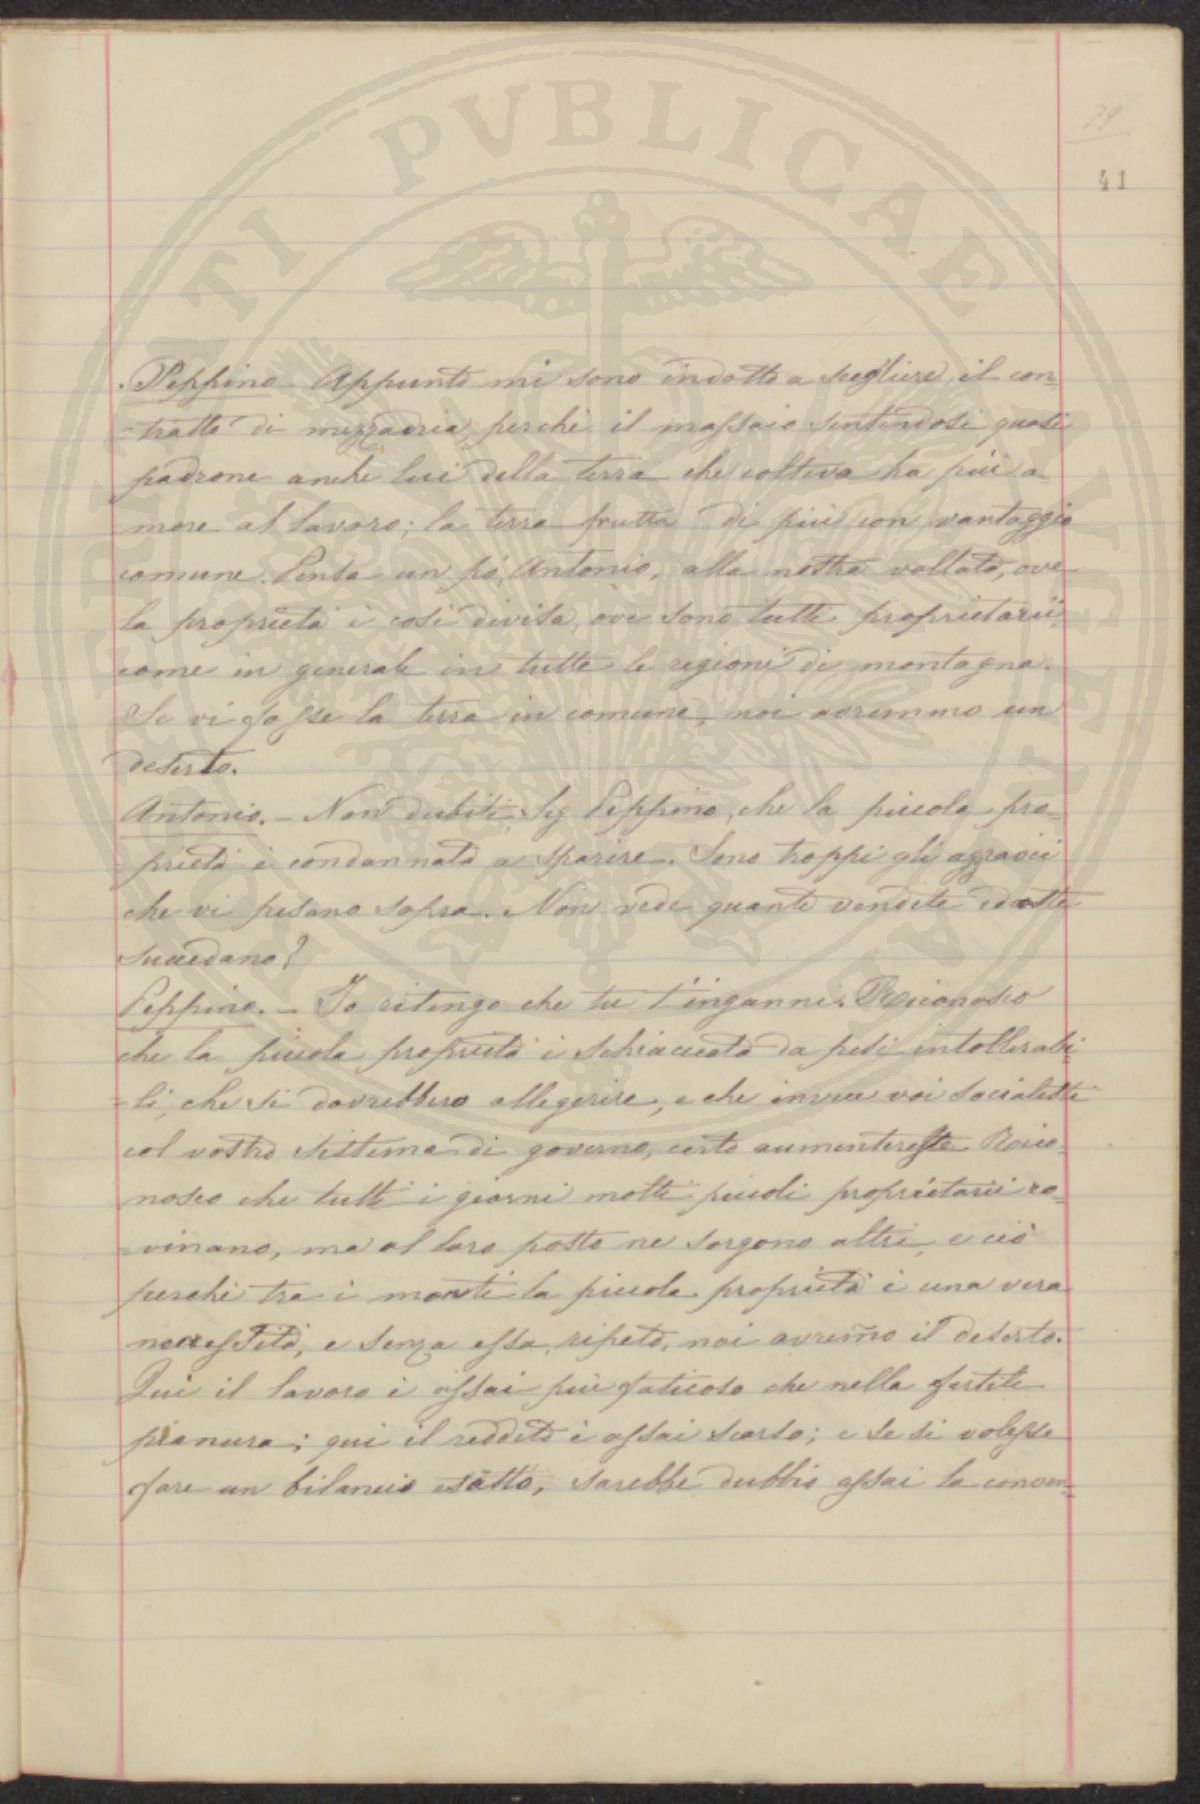 PVBLICAE
79
41
Peppino Appunto mi sono indotto a scegliere il con-
=tratto di mezzadria, perchè il massaio sentendosi quasi
padrone anche lui della terra che coltiva ha più a-
more al lavoro; la terra frutta di più con vantaggio
comune. Pensa un pò, Antonio, alla nostra vallata, ove
la proprietà è così divisa, ove sono tutti proprietarii,
come in generale in tutte le regioni di montagna.
Se vi fosse la terra in comune, noi avremmo un
deserto.
Antonio. — Non dubiti, Sig Peppino, che la piccola pro-
prietà è condannata a sparire. Sono troppi gli aggravii
che vi pesano sopra. Non vede quante vendite ed aste
succedano?
Peppino. — Io ritengo che tu t'inganni. Riconosco
che la piccola proprietà è schiacciata da pesi intollerabi-
=li, che si dovrebbero allegerire, e che invece voi socialisti
col vostro sistema di governo, certo aumentereste. Rico-
nosco che tutti i giorni molti piccoli proprietarii ro-
=vinano, ma al loro posto ne sorgono altri, e ciò
perchè tra i monti la piccola proprietà è una vera
necessità, e senza essa, ripeto, noi avrem̃o il deserto.
Qui il lavoro è assai più faticoso che nella fertile
pianura; qui il reddito è assai scarso; e se si volesse
fare un bilancio esatto, sarebbe dubbio assai la conven=